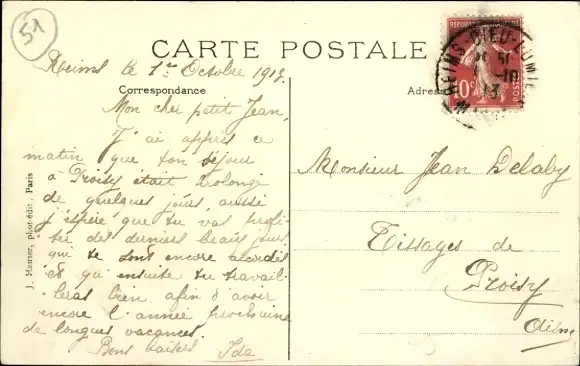 51
CARTE POSTALE
Reims le 1er Octobre 1913.
Correspondance
Mon cher petit Jean,
J'ai appris ce
matin que ton séjour
à Proisy était prolongé
de quelques jours, aussi
j'espère que tu vas profi-
ter des derniers beaux jours
qui te sont encore accordés
et qu'ensuite tu travail-
leras bien afin d'avoir
encore l'année prochaine
de longues vacances.
Bons baisers Ida
J. Hauser, phot-édit, Paris
REPUBLIQUE FRANÇAISE
10c
POSTES
REIMS
10
13
Monsieur Jean Delaby
Tissages de
Proisy
Aisne